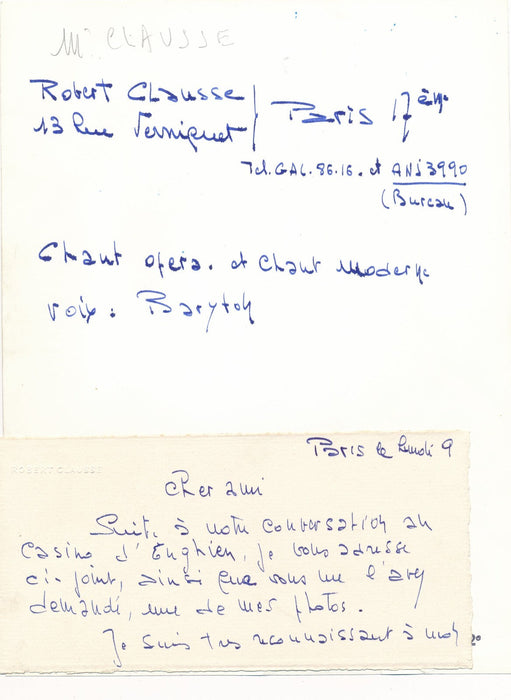 Mr CLAUSSE
Robert Clausse
13 Rue Verniquet
Paris 17ème
Tel. GAL. 86.16. et ANJ 3990
(Bureau)
Chant opera. et Chant Moderne
voix : Baryton
Paris le lundi 9
ROBERT CLAUSSE
Cher ami
Suite à notre conversation au
Casino d'Enghien, je vous adresse
ci-joint, ainsi que vous me l'avez
demandé, une de mes photos.
Je suis très reconnaissant à mon